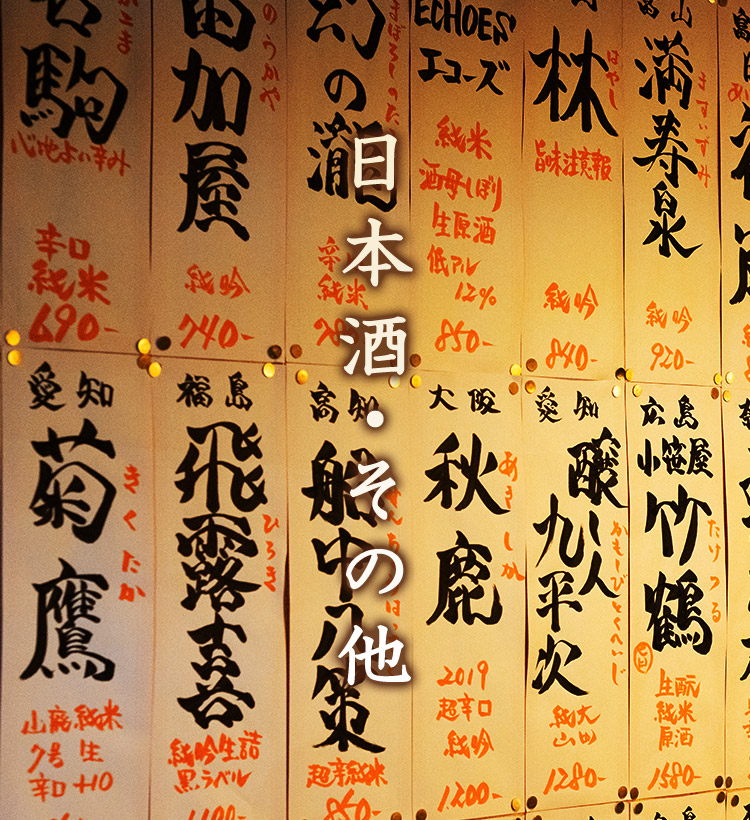 日本酒・その他
富山
満寿泉
ますいずみ
純吟
920-
林
はやし
旨味注意報
純吟
840-
ECHOES
エコーズ
純米
酒母しぼり
生原酒
低アル
12%
850-
幻の瀧
純米
加屋
のうかや
純吟
740-
駒
心地よい辛み
辛口
純米
690-
広島
小笹屋
竹鶴
たけつる
生酛
純米
原酒
1580-
愛知
醸し人
九平次
かもしびとくへいじ
純大
山田
1280-
大阪
秋鹿
あきしか
2019
超辛口
純吟
1200-
高知
船中八策
超辛純米
850-
福島
飛露喜
ひろき
純吟生詰
黒ラベル
愛知
菊鷹
きくたか
山廃純米
7号 生
辛口 +10